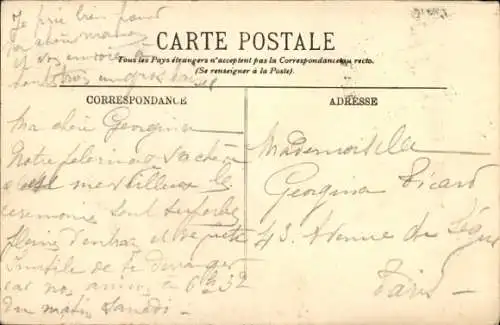 Je prie bien pour
ta chère maman
CARTE POSTALE
Tous les Pays étrangers n'acceptent pas la Correspondance au recto.
(Se renseigner à la Poste).
CORRESPONDANCE
ADRESSE
Ma chère Georgina
Notre pèlerinage
est merveilleux les
ceremonies sont superbes
pleines d'entrain et de piété
Inutile de te deranger
car nous à 6h 32
du matin Samedi.
Mademoiselle
Georgina Picard
43 Avenue de Ségur
Paris